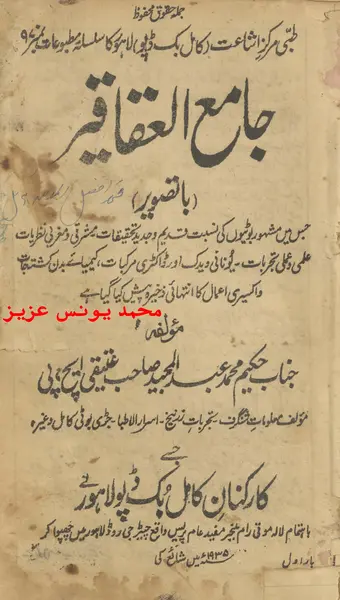 جملہ حقوق محفوظ
طبی مرکز اشاعت (کامل بک ڈپو) لاہور کا سلسلہ مطبوعات نمبر ۹۷
جامع العقاقیر
(باتصویر)
جس میں مشہور بوٹیوں کی نسبت قدیم و جدید تحقیقات مشرقی و مغربی نظریات
علمی و عملی تجربات - یونانی ویدک اور ڈاکٹری مرکبات، کیمیائے بدن کشتہ جات
و اکسیری اعمال کا انتہائی ذخیرہ پیش کیا گیا ہے
محمد یونس عزیز
مؤلفہ
جناب حکیم محمد عبدالمجید صاحب عتیقی ایچ پی
مؤلف معلومات شنگرف - تجربات زرنیخ - اسرار الاطبا - جڑی بوٹی کامل وغیرہ
جسے
کارکنان کامل بک ڈپو لاہور نے
باہتمام لالہ موتی رام منیجر مفید عام پریس واقع چیٹرجی روڈ لاہور میں چھپوا کر
۱۹۳۵ء میں شائع کی
بار اول